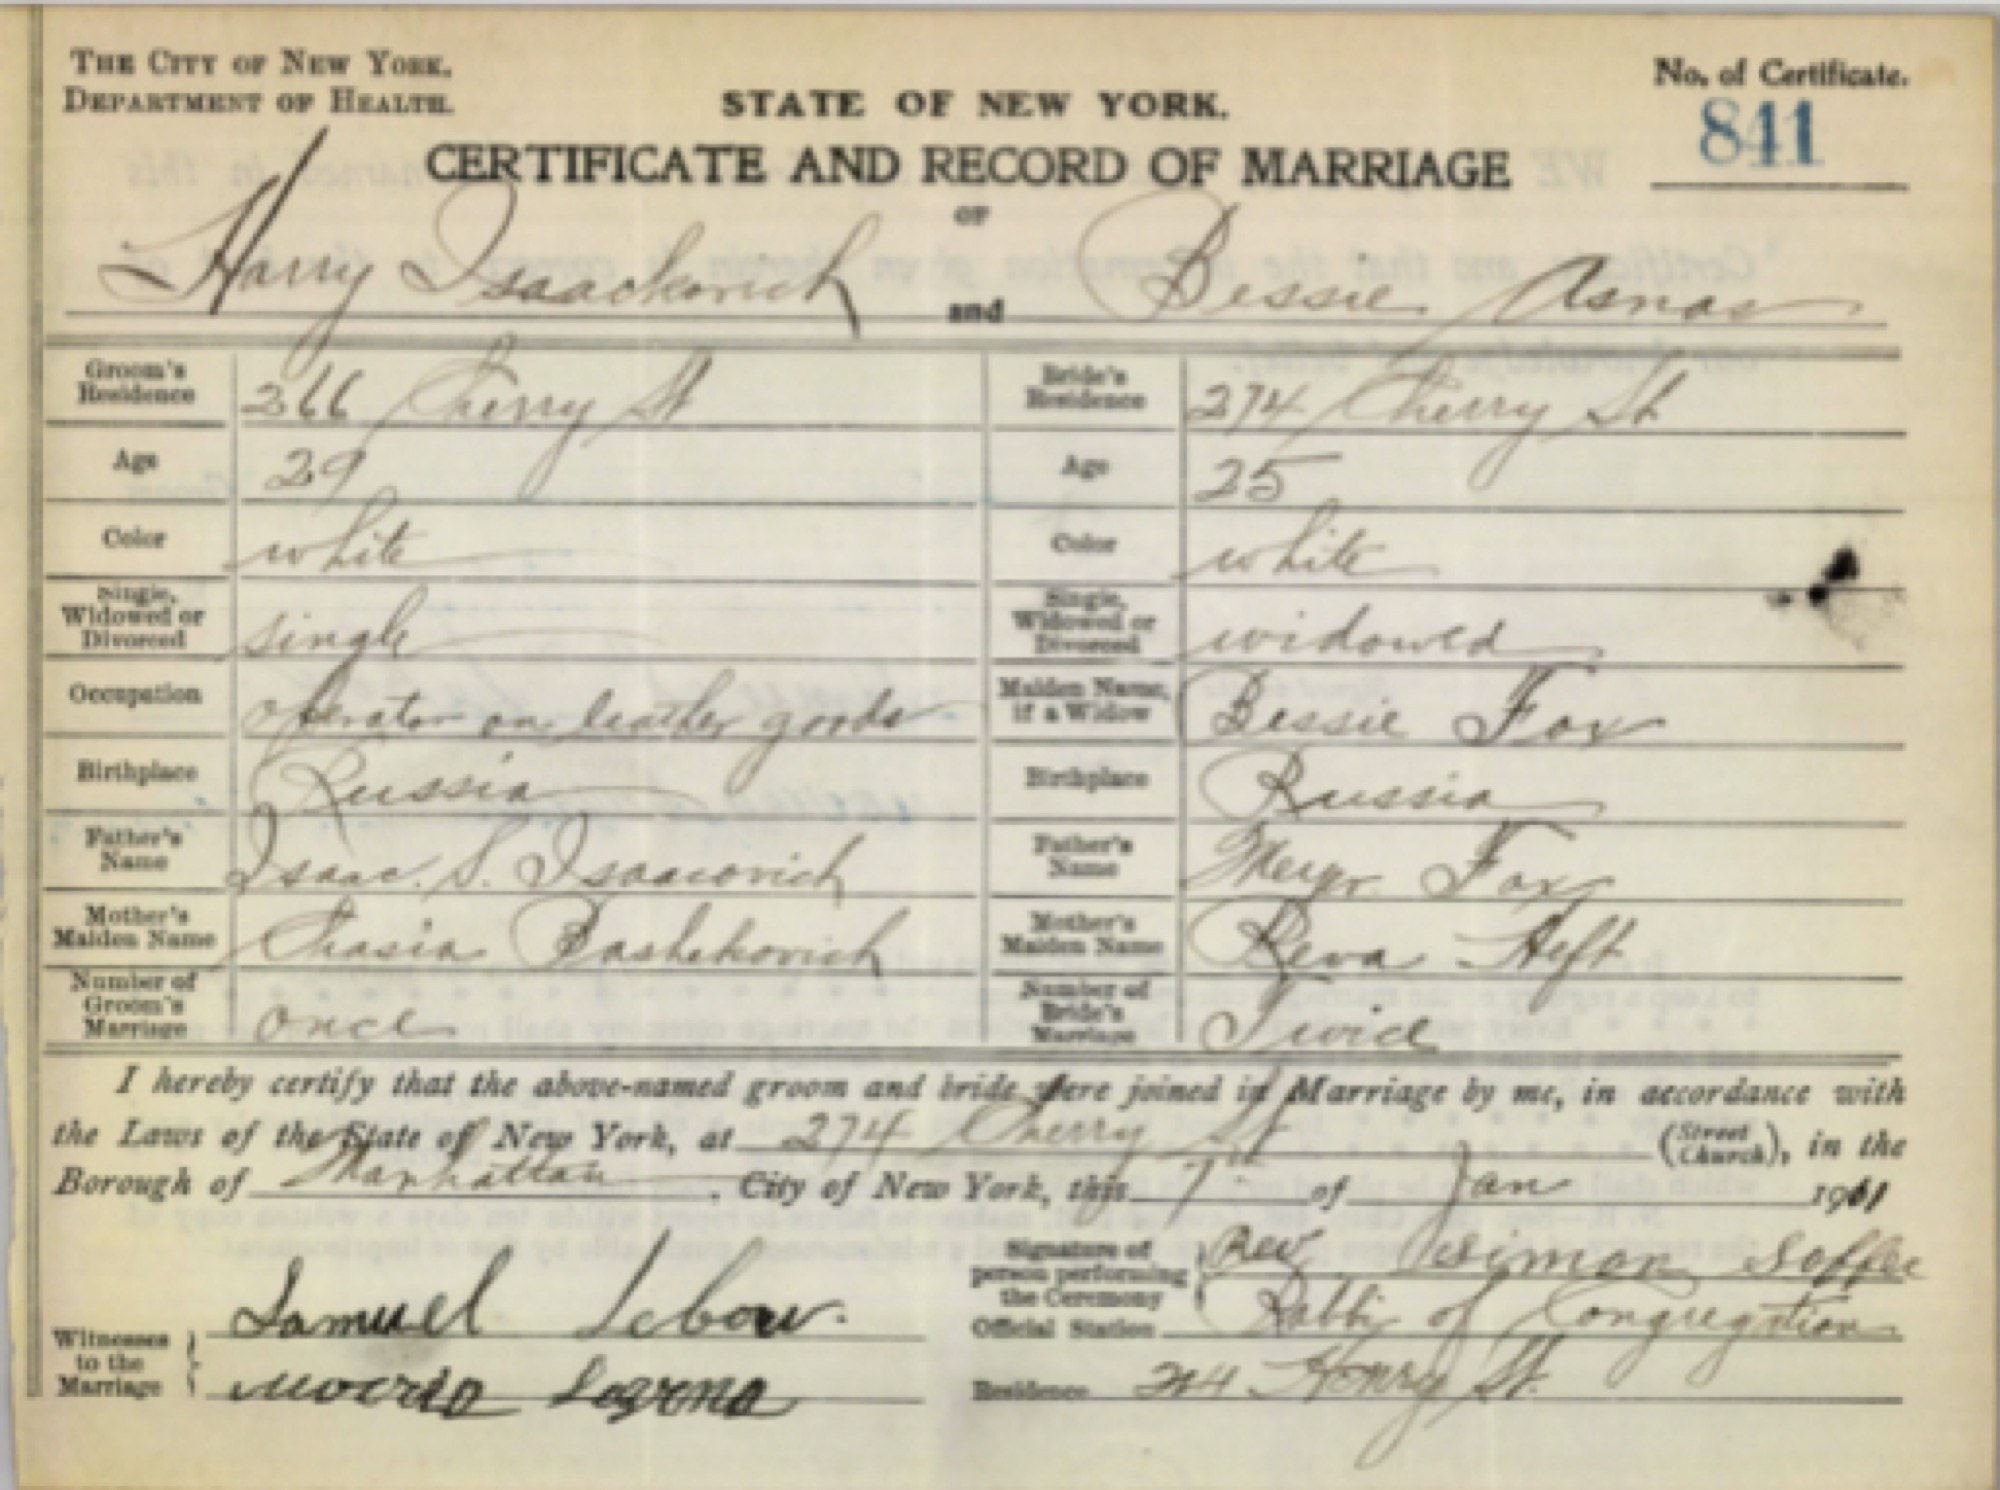 THE CITY OF NEW YORK.
DEPARTMENT OF HEALTH.
No. of Certificate.
841
STATE OF NEW YORK.
CERTIFICATE AND RECORD OF MARRIAGE
OF
Harry Isaackovich and Bessie Asnas
Groom's Residence 266 Cherry St
Bride's Residence 274 Cherry St
Age 29
Age 25
Color white
Color white
Single, Widowed or Divorced single
Single, Widowed or Divorced widowed
Occupation operator on leather goods
Maiden Name, if a Widow Bessie Fox
Birthplace Russia
Birthplace Russia
Father's Name Isaac. S. Isaacovich
Father's Name Meyer Fox
Mother's Maiden Name Chasia Bashekovich
Mother's Maiden Name Reva Heft
Number of Groom's Marriage once
Number of Bride's Marriage Twice
I hereby certify that the above-named groom and bride were joined in Marriage by me, in accordance with
the Laws of the State of New York, at 274 Cherry St (Street Church), in the
Borough of Manhattan, City of New York, this 7th of Jan 1911
Signature of person performing the Ceremony Rev Simon Soffer
Official Station Rabbi of Congregation
Residence Henry St.
Witnesses to the Marriage
Samuel Lebow.